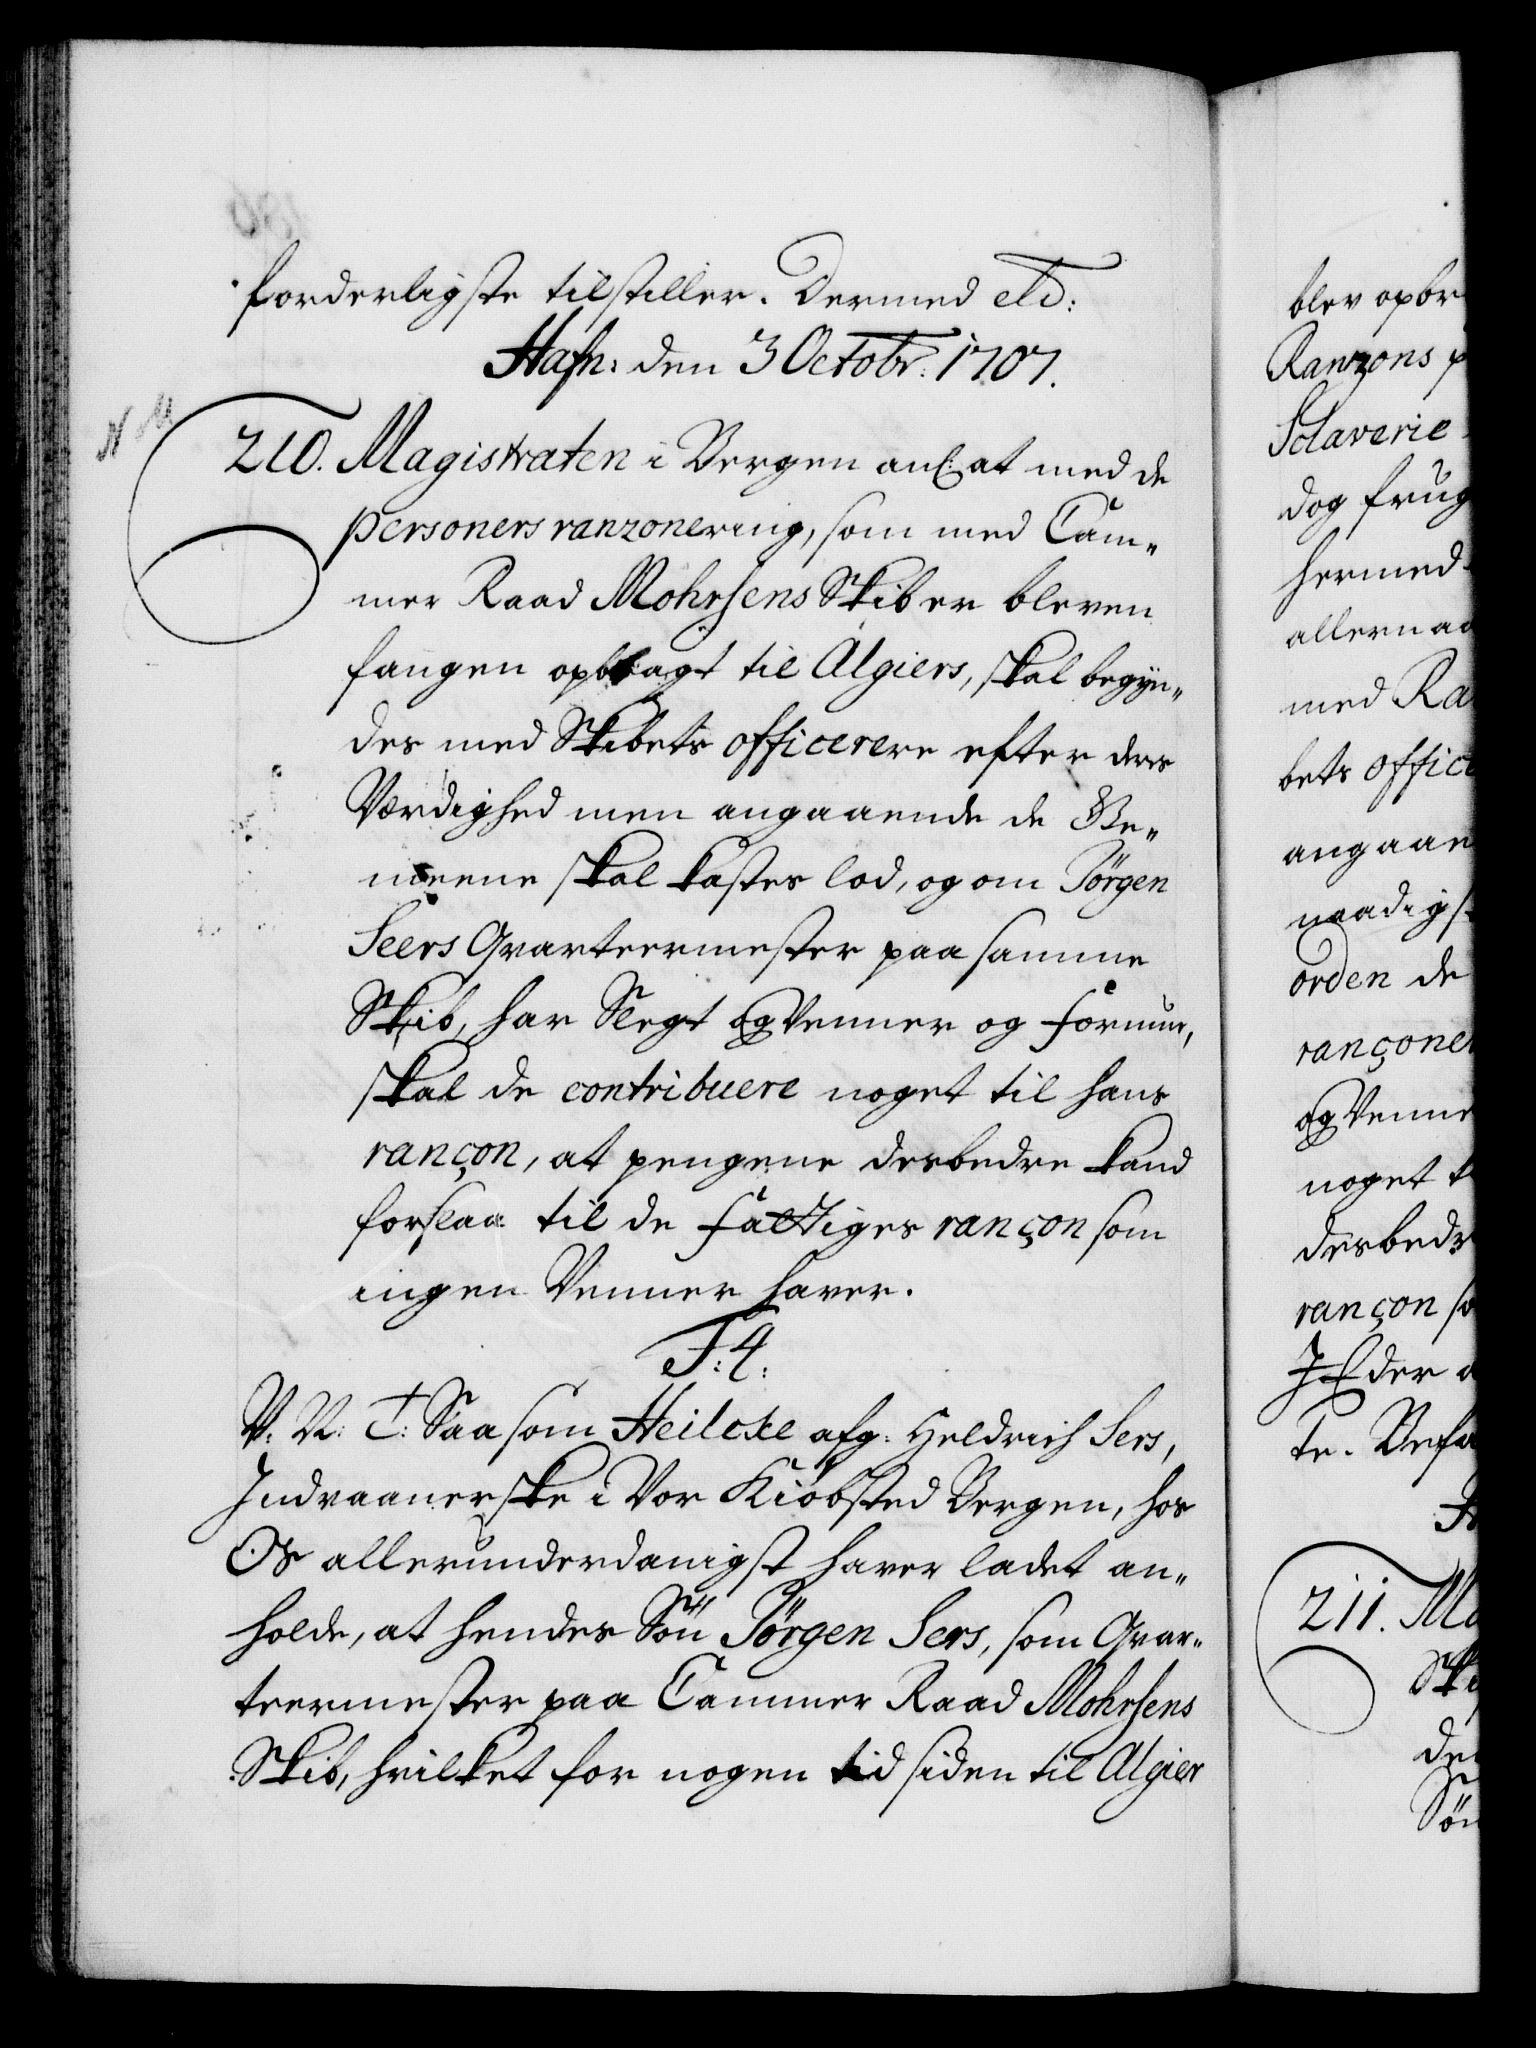 forderligste tilstiller. Dermed etc:
Hafn: den 3 Octobr: 1707.
210. Magistraten i Bergen anl: at med de
personers ranzonering, som med Cam-
mer Raad Mohrsens Skib er bleven
fangen opbragt til Algiers, skal begyn-
des med Skibets officerere efter deres
Værdighed men angaaende de Ge-
meene skal kastes lod, og om Jörgen
Seers Qvarteermester paa samme
Skib, har Slegt og Venner og formue,
skal de contribuere noget til hans
rançon, at pengene desbedre kand
forslaa til de fattiges rançon som
ingen Venner haver.
F: 4:
V. V: T: Saasom Heilcke afg: Heldrich Sers,
Indvaanerske i Vor Kiøbsted Bergen, hos
Os allerunderdanigst haver ladet an-
holde, at hendes Sön Jörgen Sers, som Qvar-
teermester paa Cammer Raad Mohrsens
Skib, hvilket for nogen tid siden til Algier
blev opbr
Ranzons p
Sclaverie
dog frug
hermed
allernaa
med Ra
bets office
angaae
naadigs
orden de
rançone
og Venne
noget t
desbedr
rançon so
I Eder a
te. Befa
211. Ma
Ski
de
Sön